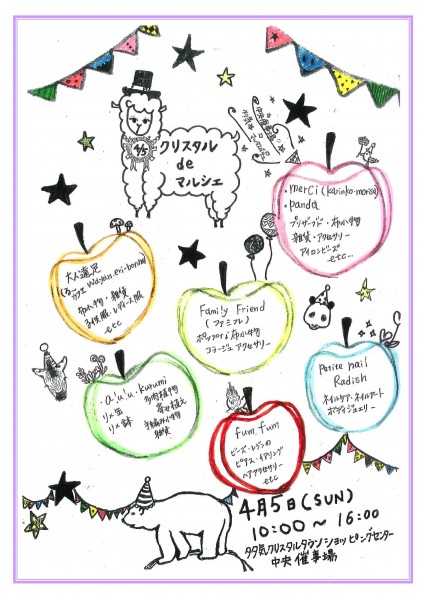 4/5
クリスタル
de
マルシェ
・merci (karinko-monza)
・panda
プリザーブド・布小物
雑貨・アクセサリー
アイロンビーズ
etc...
大人遠足
布小物・雑貨
子供服・レディース服
etc
Family Friend
(ファミフレ)
布小物
コラージュアクセサリー
・a'u'u・kurumi
リメ缶
リメ鉢
多肉植物
寄せ植え
手編み小物
雑貨
Petite nail
Radish
ネイルケア・ネイルアート
ボディジュエリー
Fum fum
ビーズ・レジンの
ピアス・イヤリング
ヘアアクセサリー
etc
4月5日(SUN)
10:00～16:00
多気クリスタルタウンショッピングセンター
中央催事場